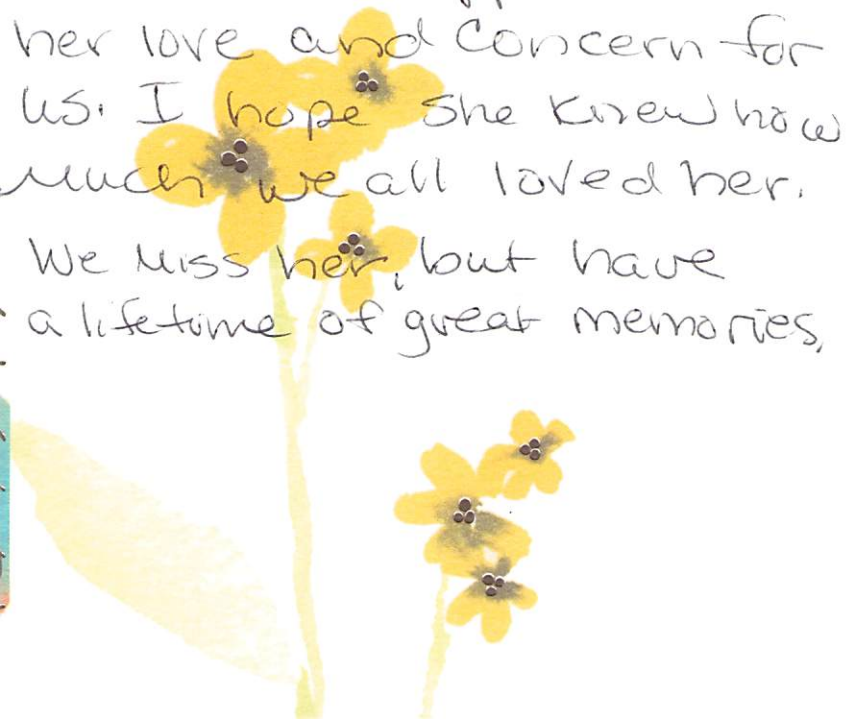 her love and concern for
us. I hope she knew how
much we all loved her.
We miss her, but have
a lifetime of great memories,